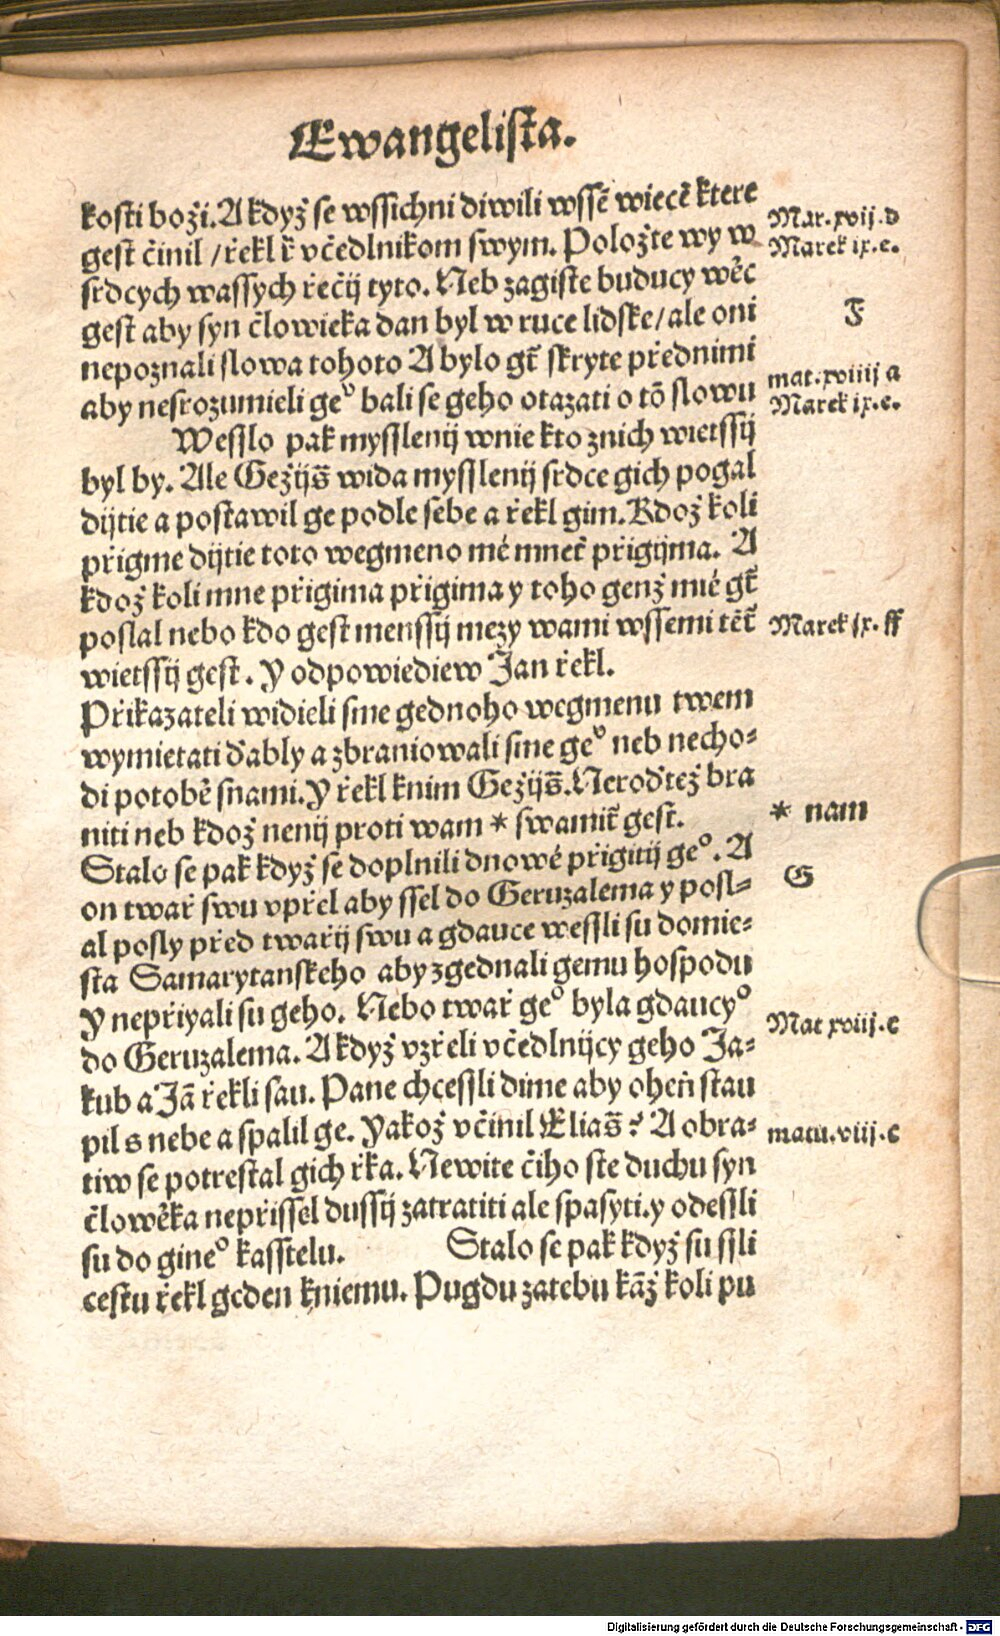 Ewangelista.
kosti boži. A když se wssichni diwili wssē wiecē ktere
gest činil / řekl k̄ včedlnikom swym. Položte wy w
srdcych wassych řečij tyto. Neb zagiste buducy wěc
gest aby syn člowieka dan byl w ruce lidske / ale oni
nepoznali slowa tohoto A bylo gt̄ skryte přednimi
aby nesrozumieli geº bali se geho otazati o tō slowu
Wesslo pak mysslenij wnie kto znich wietssij
byl by. Ale Gežijs̄ wida mysslenij srdce gich pogal
dijtie a postawil ge podle sebe a řekl gim. Kdož koli
přigme dijtie toto wegmeno mé mnet̄ přigijma. A
kdož koli mne přigima přigima y toho genž mié gt̄
poslal nebo kdo gest menssij mezy wami wssemi tēt̄
wietssij gest. Y odpowiediew Jan řekl.
Přikazateli widieli sme gednoho wegmenu twem
wymietati ďably a zbraniowali sme geº neb necho⸗
di potobě snami. Y řekl knim Gežijs̄. Neroďtež bra
niti neb kdož nenij proti wam * swamit̄ gest.
Stalo se pak když se doplnili dnowé přigitij geº. A
on twař swu vpřel aby ssel do Geruzalema y posl⸗
al posly před twařij swu a gdauce wessli su domie⸗
sta Samarytanskeho aby zgednali gemu hospodu
Y nepřiyali su geho. Nebo twař geº byla gdaucyº
do Geruzalema. A když vzřeli včedlnijcy geho Ja⸗
kub a Jā řekli sau. Pane chcessli dime aby oheň stau
pil s nebe a spalil ge. Yakož včinil Elias̄ ? A obra⸗
tiw se potrestal gich řka. Newite čiho ste duchu syn
člowěka nepřissel dussij zatratiti ale spasyti. y odessli
su do gineº kasstelu. Stalo se pak když su ssli
cestu řekl geden kniemu. Pugdu zatebu kāž koli pu
Mar. xvij. d
Marek ix. e.
F
mat. xviiij a
Marek ix. e.
Marek ix. ff
* nam
G
Mat xviij. c
matu. viij. c
Digitalisierung gefördert durch die Deutsche Forschungsgemeinschaft - DFG